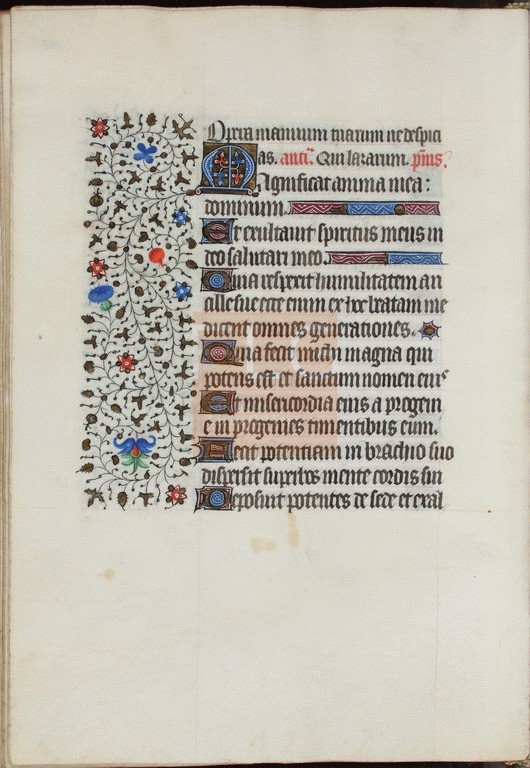 Opera manuum tuarum ne despici
as. anti. Qui lazarum. pmis.
Magnificat anima mea:
dominum.
Et exultavit spiritus meus in
deo salutari meo.
Quia respexit humilitatem an
cille sue ecce enim ex hoc beatam me
dicent omnes generationes.
Quia fecit michi magna qui
potens est et sanctum nomen eius
Et misericordia eius a progeni
e in progenies timentibus eum.
Fecit potentiam in brachio suo
dispersit superbos mente cordis sui
Deposuit potentes de sede et exal